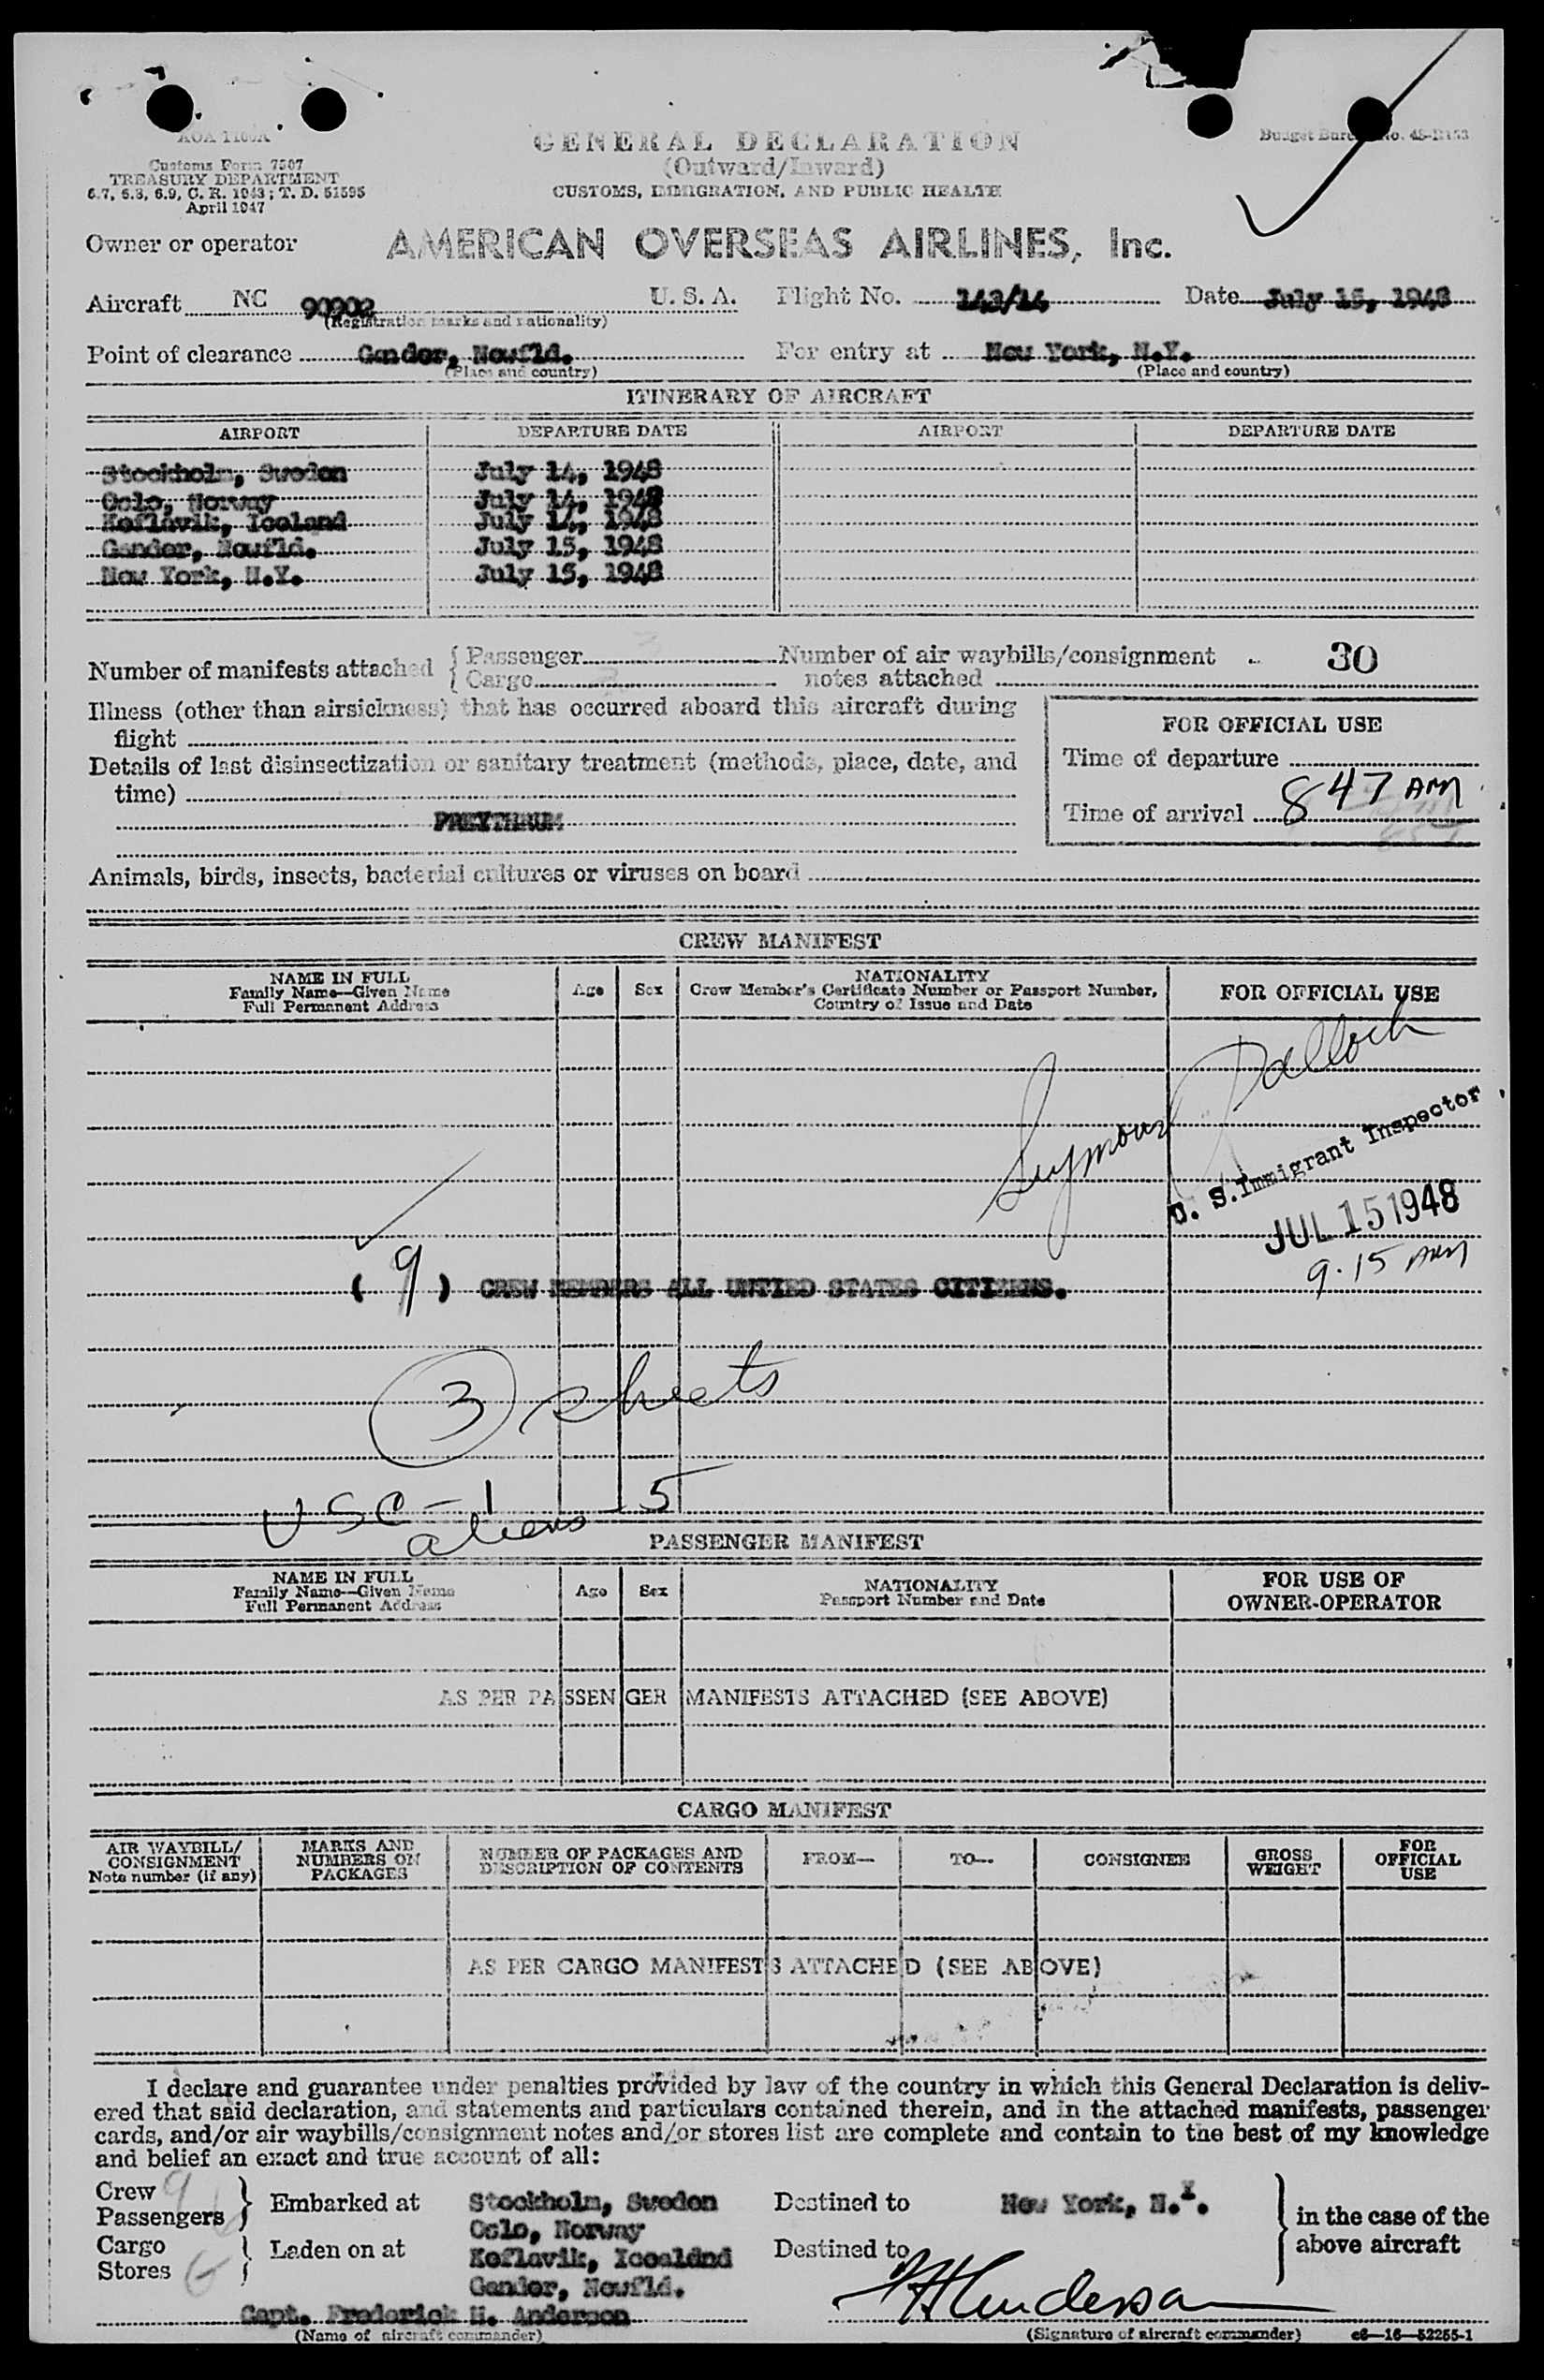 AOA 1100A
Customs Form 7507
TREASURY DEPARTMENT
6.7, 6.8, 6.9, C. R. 1943; T. D. 51595
April 1947
GENERAL DECLARATION
(Outward/Inward)
CUSTOMS, IMMIGRATION, AND PUBLIC HEALTH
Budget Bureau No.
Owner or operator AMERICAN OVERSEAS AIRLINES, Inc.
Aircraft NC 90902 U. S. A. Flight No. 143/14 Date July 15, 1948
(Registration marks and nationality)
Point of clearance Gander, Newfld. For entry at New York, N.Y.
(Place and country) (Place and country)
ITINERARY OF AIRCRAFT
AIRPORT DEPARTURE DATE AIRPORT DEPARTURE DATE
Stockholm, Sweden July 14, 1948
Oslo, Norway July 14, 1948
Keflavik, Iceland July 14, 1948
Gander, Newfld. July 15, 1948
New York, N.Y. July 15, 1948
Number of manifests attached { Passenger 3 Number of air waybills/consignment 30
Cargo notes attached
Illness (other than airsickness) that has occurred aboard this aircraft during
flight
Details of last disinsectization or sanitary treatment (methods, place, date, and
time)
PREYTHRUM
FOR OFFICIAL USE
Time of departure
Time of arrival 8 47 AM
Animals, birds, insects, bacterial cultures or viruses on board
CREW MANIFEST
NAME IN FULL
Family Name—Given Name
Full Permanent Address
Age
Sex
NATIONALITY
Crew Member's Certificate Number or Passport Number,
Country of Issue and Date
FOR OFFICIAL USE
Seymour
U. S. Immigrant Inspector
JUL 15 1948
9.15 AM
( 9 ) CREW MEMBERS ALL UNTIED STATES CITIZENS.
3 sheets
USC - 1
aliens 5
PASSENGER MANIFEST
NAME IN FULL
Family Name—Given Name
Full Permanent Address
Age
Sex
NATIONALITY
Passport Number and Date
FOR USE OF
OWNER-OPERATOR
AS PER PASSENGER MANIFESTS ATTACHED (SEE ABOVE)
CARGO MANIFEST
AIR WAYBILL/
CONSIGNMENT
Note number (if any)
MARKS AND
NUMBERS ON
PACKAGES
NUMBER OF PACKAGES AND
DESCRIPTION OF CONTENTS
FROM—
TO—
CONSIGNEE
GROSS
WEIGHT
FOR
OFFICIAL
USE
AS PER CARGO MANIFESTS ATTACHED (SEE ABOVE)
I declare and guarantee under penalties provided by law of the country in which this General Declaration is deliv-
ered that said declaration, and statements and particulars contained therein, and in the attached manifests, passenger
cards, and/or air waybills/consignment notes and/or stores list are complete and contain to the best of my knowledge
and belief an exact and true account of all:
Crew 9
Passengers 6 } Embarked at Stockholm, Sweden Destined to New York, N.Y.
Oslo, Norway
Cargo
Stores } Laden on at Keflavik, Icealdnd Destined to
Gander, Newfld.
} in the case of the
above aircraft
Capt. Frederick H. Anderson
FHAnderson
(Name of aircraft commander) (Signature of aircraft commander) c6—16—52255-1